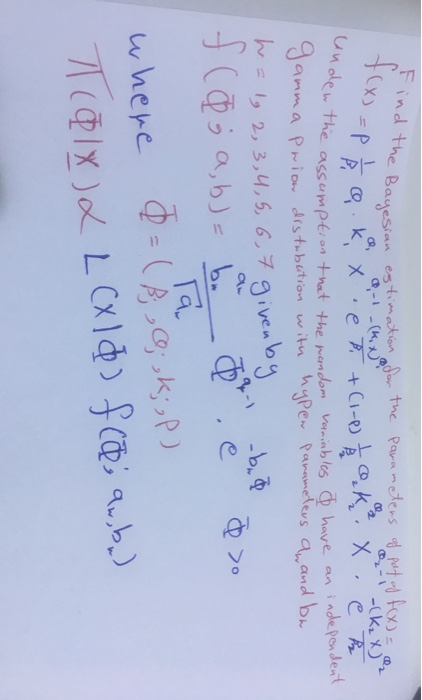 Find the Bayesian estimation for the parameters of pdf of f(x) =
f(x) = P 1/β₁ θ₁ · k₁^θ₁ X^(θ₁-1) · e^(-(k₁x)^θ₁/β₁) + (1-P) 1/β₂ θ₂ k₂^θ₂ · X^(θ₂-1) · e^(-(k₂x)^θ₂/β₂)
under the assumption that the random variables Φ have an independent
gamma prior distribution with hyper parameters aₙ and bₙ
w = 1, 2, 3, 4, 5, 6, 7 given by
f(Φ; a, b) = bₙ^aₙ/Γaₙ Φ^(aₙ-1) · e^(-bₙΦ) Φ>0
where Φ = (βᵢ, θᵢ, kᵢ, P)
π(Φ|X) α L(X|Φ) f(Φ; aₙ, bₙ)